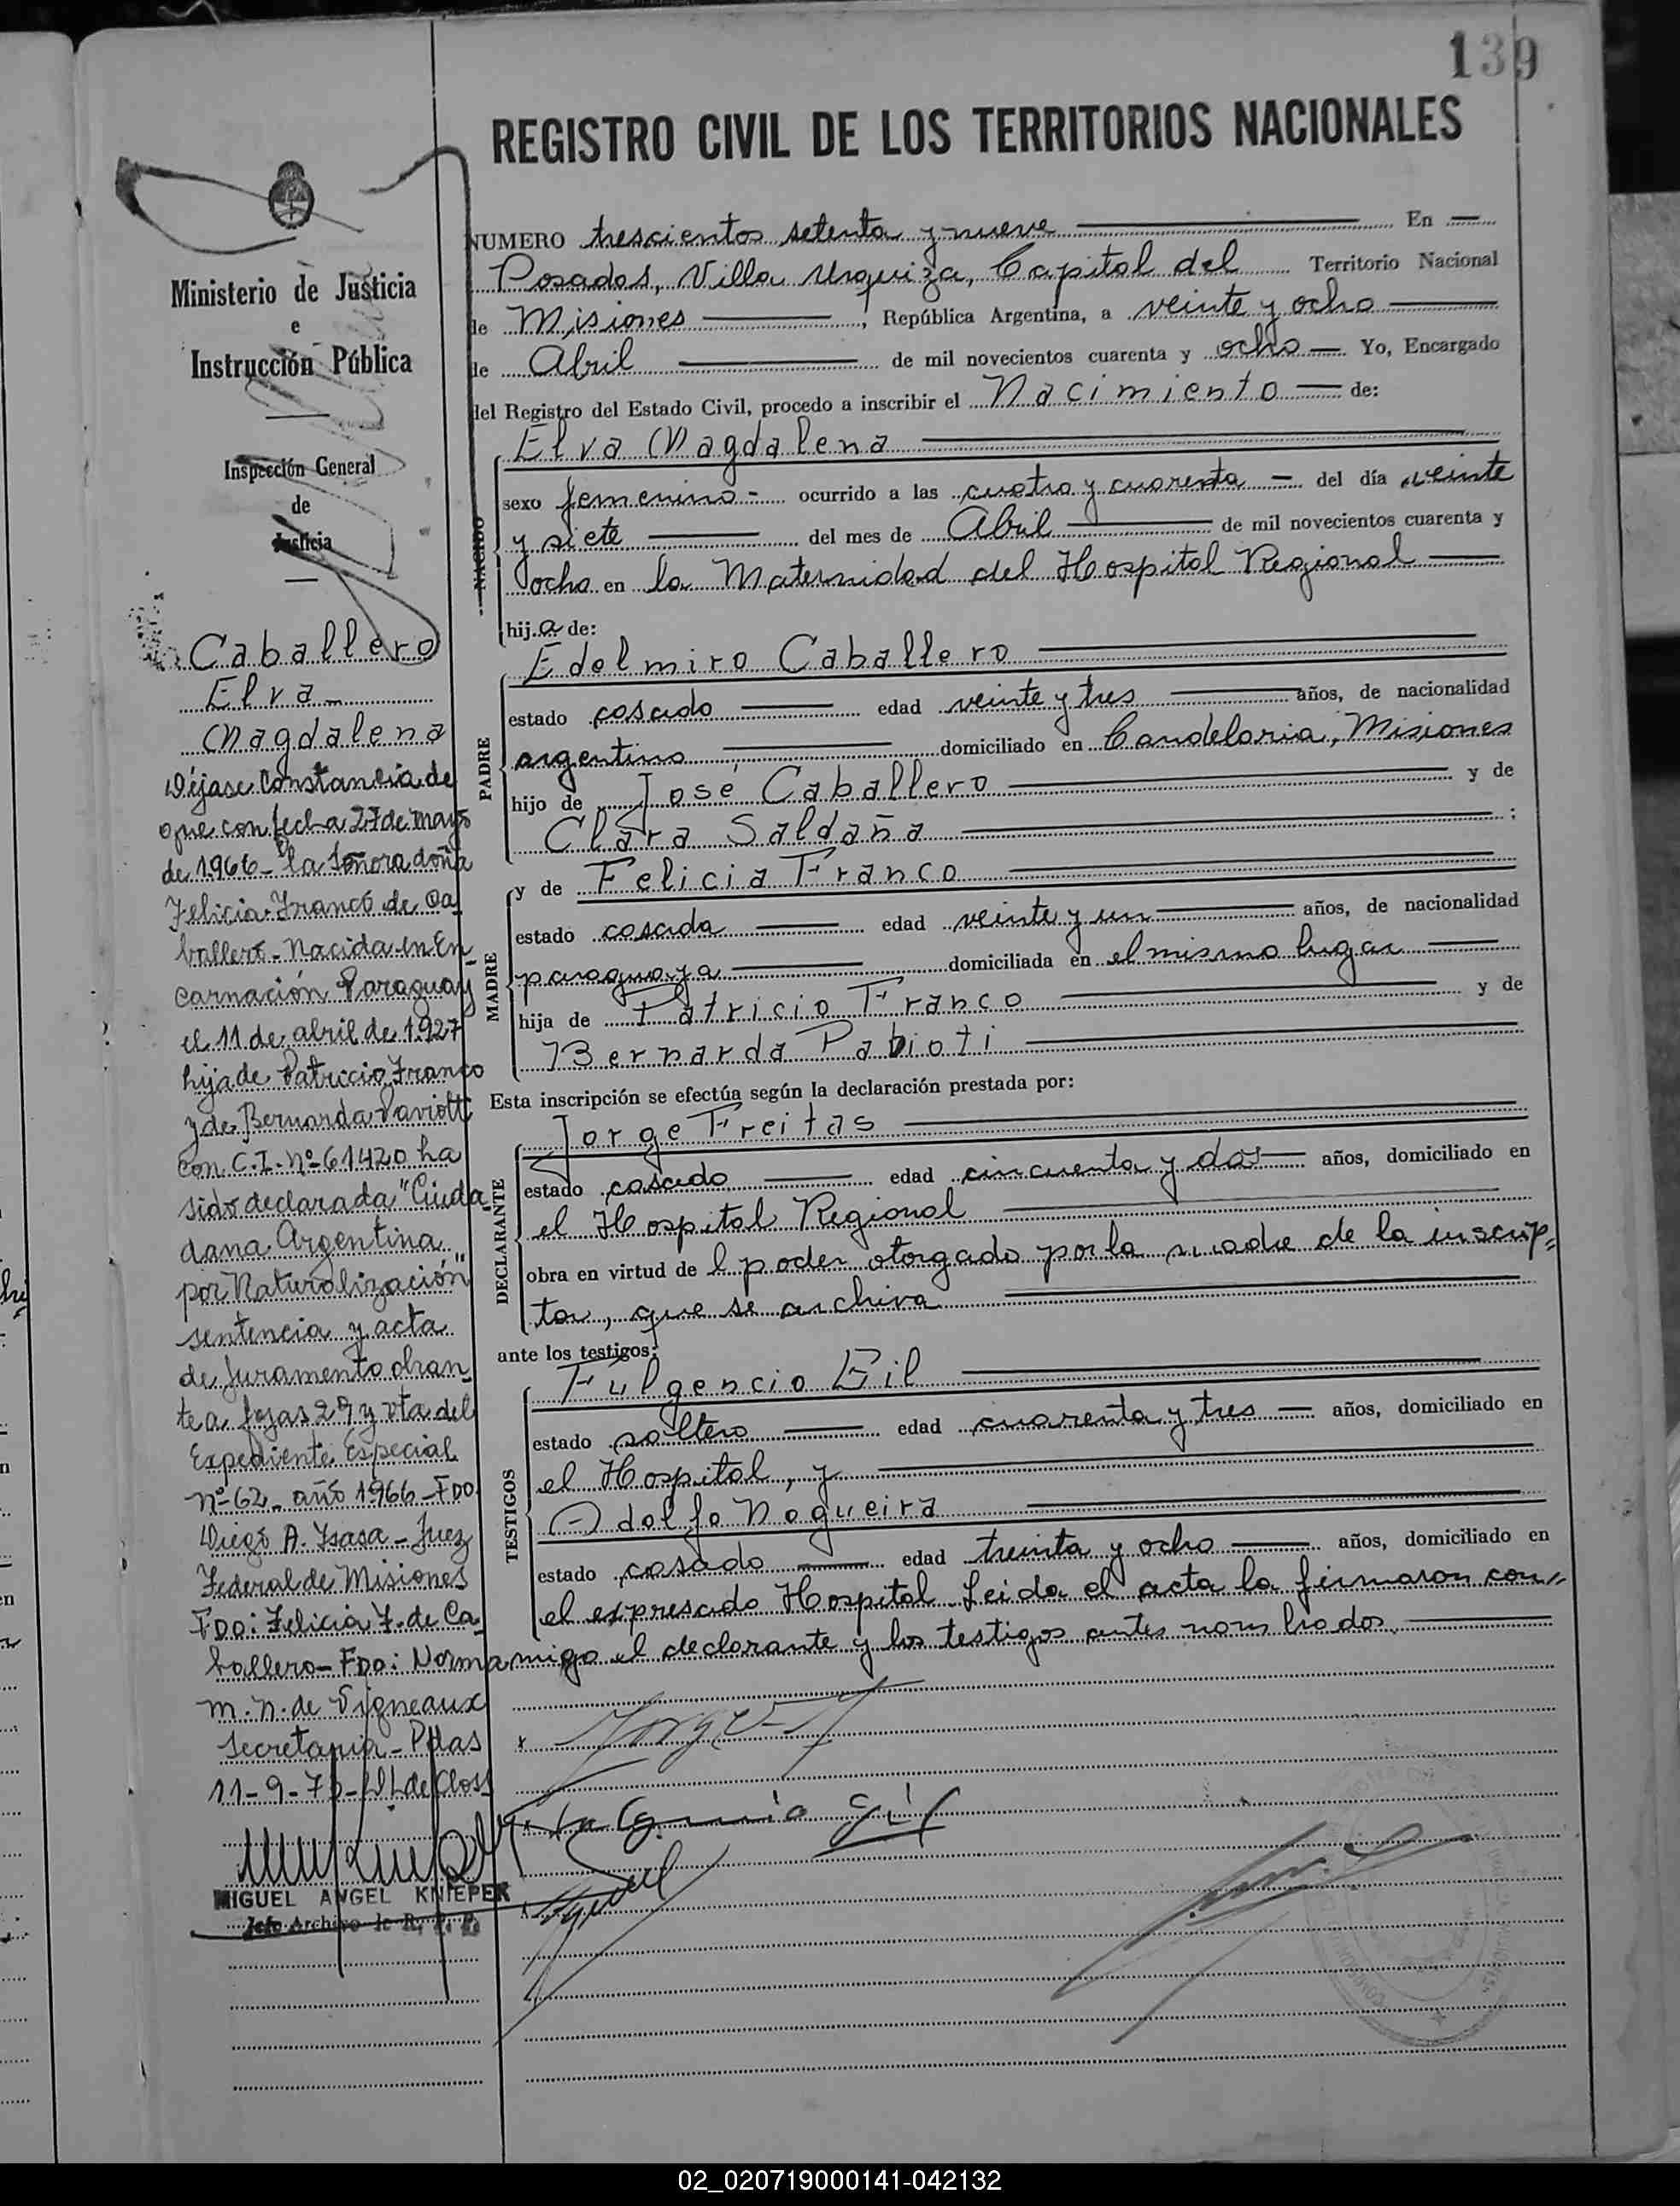 139
REGISTRO CIVIL DE LOS TERRITORIOS NACIONALES
Ministerio de Justicia
e
Instrucción Pública
Inspección General
de
Justicia
Caballero
Elva
Magdalena
Déjase Constancia de
que con fecha 27 de mayo
de 1966 - la Señora doña
Felicia Franco de Ca
ballero - Nacida en En
carnación Paraguay
el 11 de abril de 1927
hija de Patriccio Franco
y de Bernarda Paviotti
con C.I. Nº 61420 ha
sido declarada "Ciuda
dana Argentina
por Naturalización"
sentencia y acta
de Juramento obran
te a fojas 29 y vta del
Expediente Especial
Nº 62 - año 1966 - FDO
Diego A. Isasa - Juez
Federal de Misiones
FDO: Felicia F. de Ca
ballero - FDO: Norma
M. N. de Vigneaux
Secretaria - Pdas
11-9-7 de Closs
MIGUEL ANGEL KNIEPER
Jefe Archivo de R. P. P.
NUMERO trescientos setenta y nueve En
Posadas, Villa Urquiza, Capital del Territorio Nacional
de Misiones, República Argentina, a veinte y ocho
de Abril de mil novecientos cuarenta y ocho Yo, Encargado
del Registro del Estado Civil, procedo a inscribir el Nacimiento de:
NACIDO
Elva Magdalena
sexo femenino - ocurrido a las cuatro y cuarenta - del día veinte
y siete del mes de Abril de mil novecientos cuarenta y
ocho en la Maternidad del Hospital Regional
hij.a de:
PADRE
Edelmiro Caballero
estado casado edad veinte y tres años, de nacionalidad
argentino domiciliado en Candelaria, Misiones
hijo de José Caballero y de
Clara Saldaña ;
MADRE
y de Felicia Franco
estado casada edad veinte y un años, de nacionalidad
paraguaya domiciliada en el mismo lugar
hija de Patricio Franco y de
Bernarda Pabioti
Esta inscripción se efectúa según la declaración prestada por:
DECLARANTE
Jorge Freitas
estado casado edad cincuenta y dos años, domiciliado en
el Hospital Regional
obra en virtud de l poder otorgado por la madre de la inscrip=
ta, que se archiva
ante los testigos:
TESTIGOS
Fulgencio Gil
estado soltero edad cuarenta y tres años, domiciliado en
el Hospital, y
Adolfo Nogueira
estado casado edad treinta y ocho años, domiciliado en
el expresado Hospital. Leida el acta la firmaron con=
migo el declarante y los testigos antes nombrados.
02_020719000141-042132